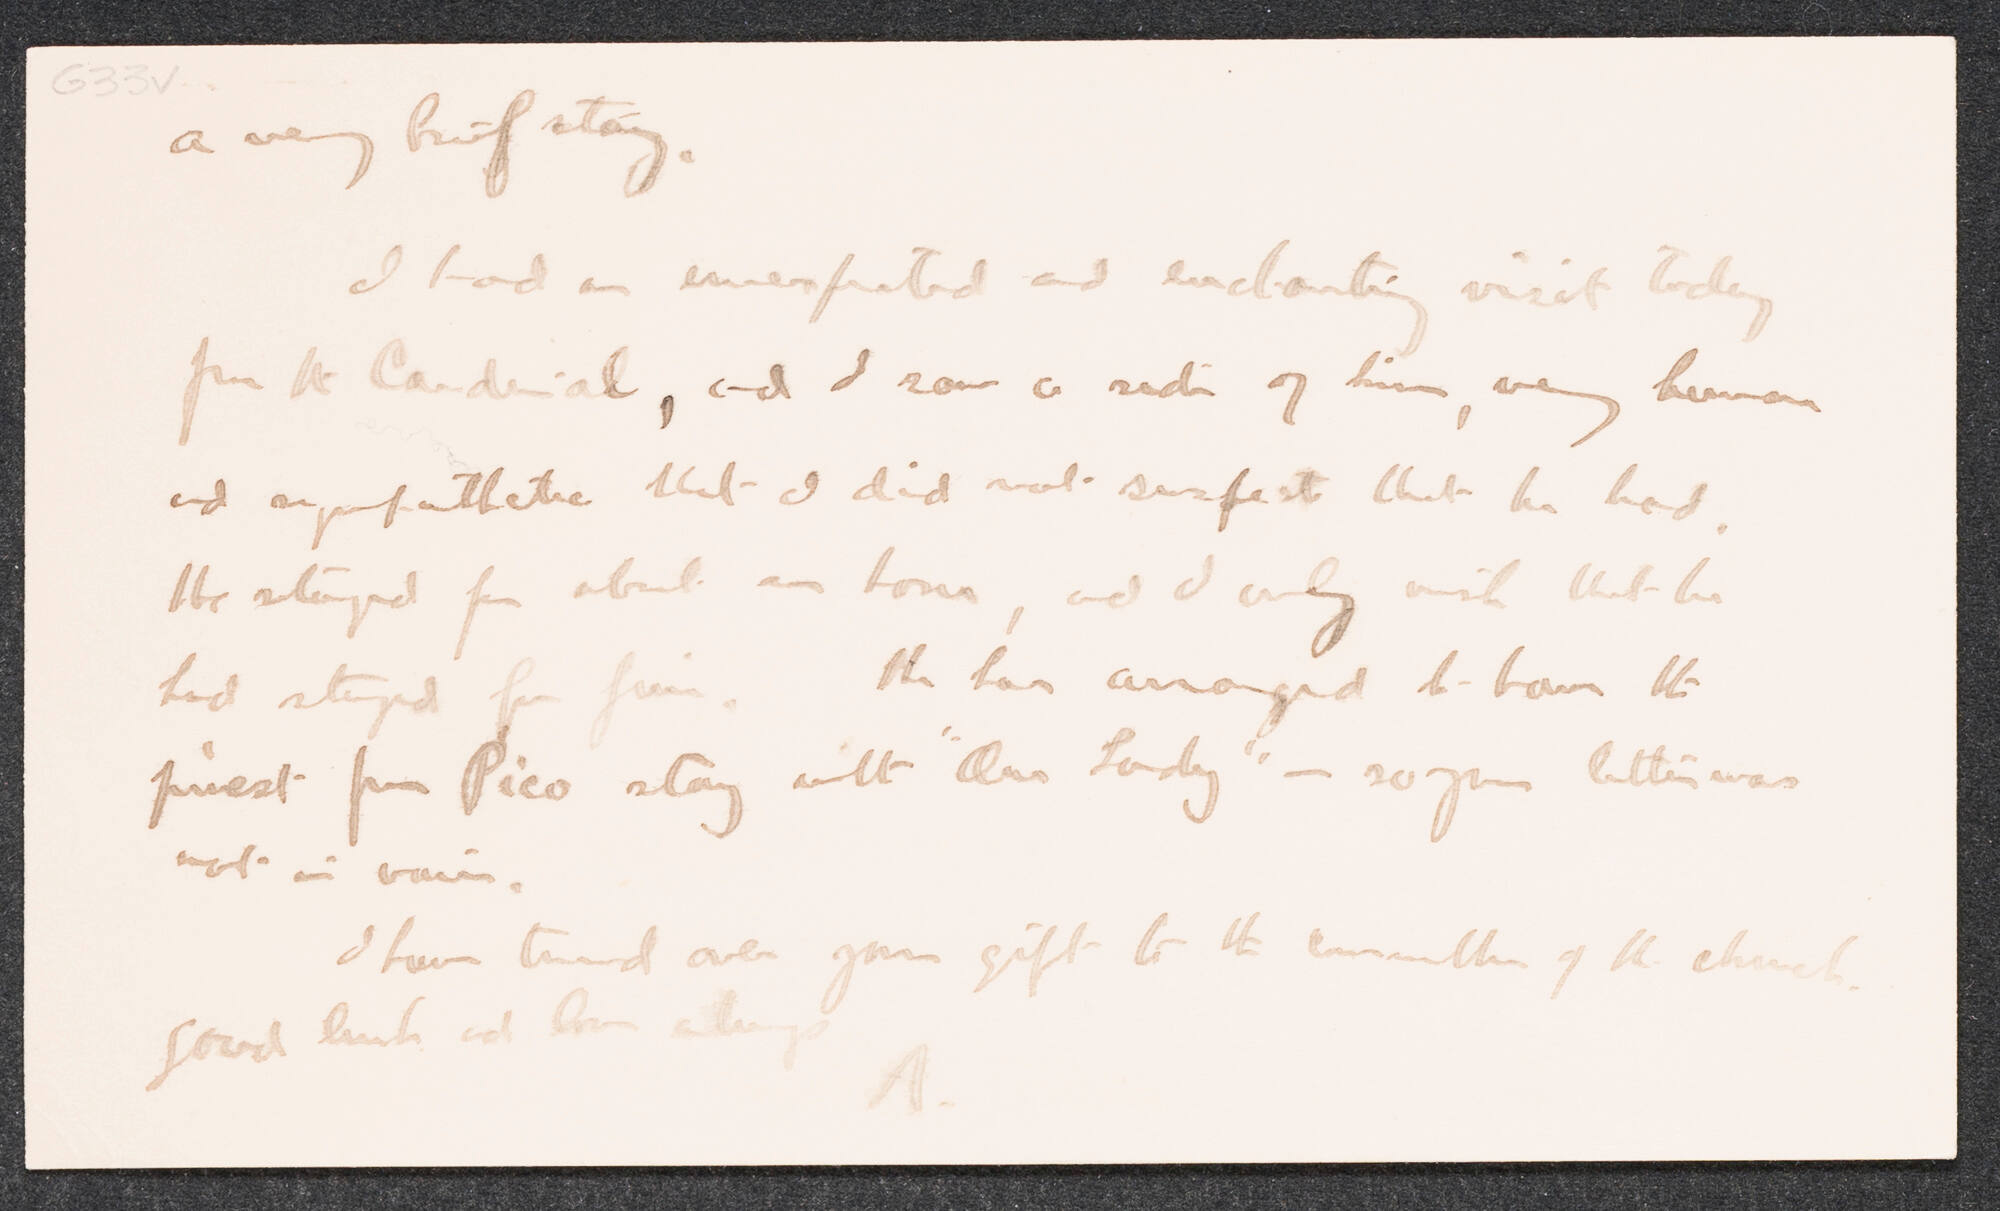 G33V
a very brief stay.
I had an unexpected and enchanting visit today
from the Cardinal, and I saw a side of him, very human
and sympathetic that I did not suspect that he had.
He stayed for about an hour, and I only wish that he
had stayed for five. He has arranged to have the
priest from Pico stay with "Our Lady" – so your letter was
not in vain.
I have turned over your gift to the committee of the church.
Good luck and love always
A.